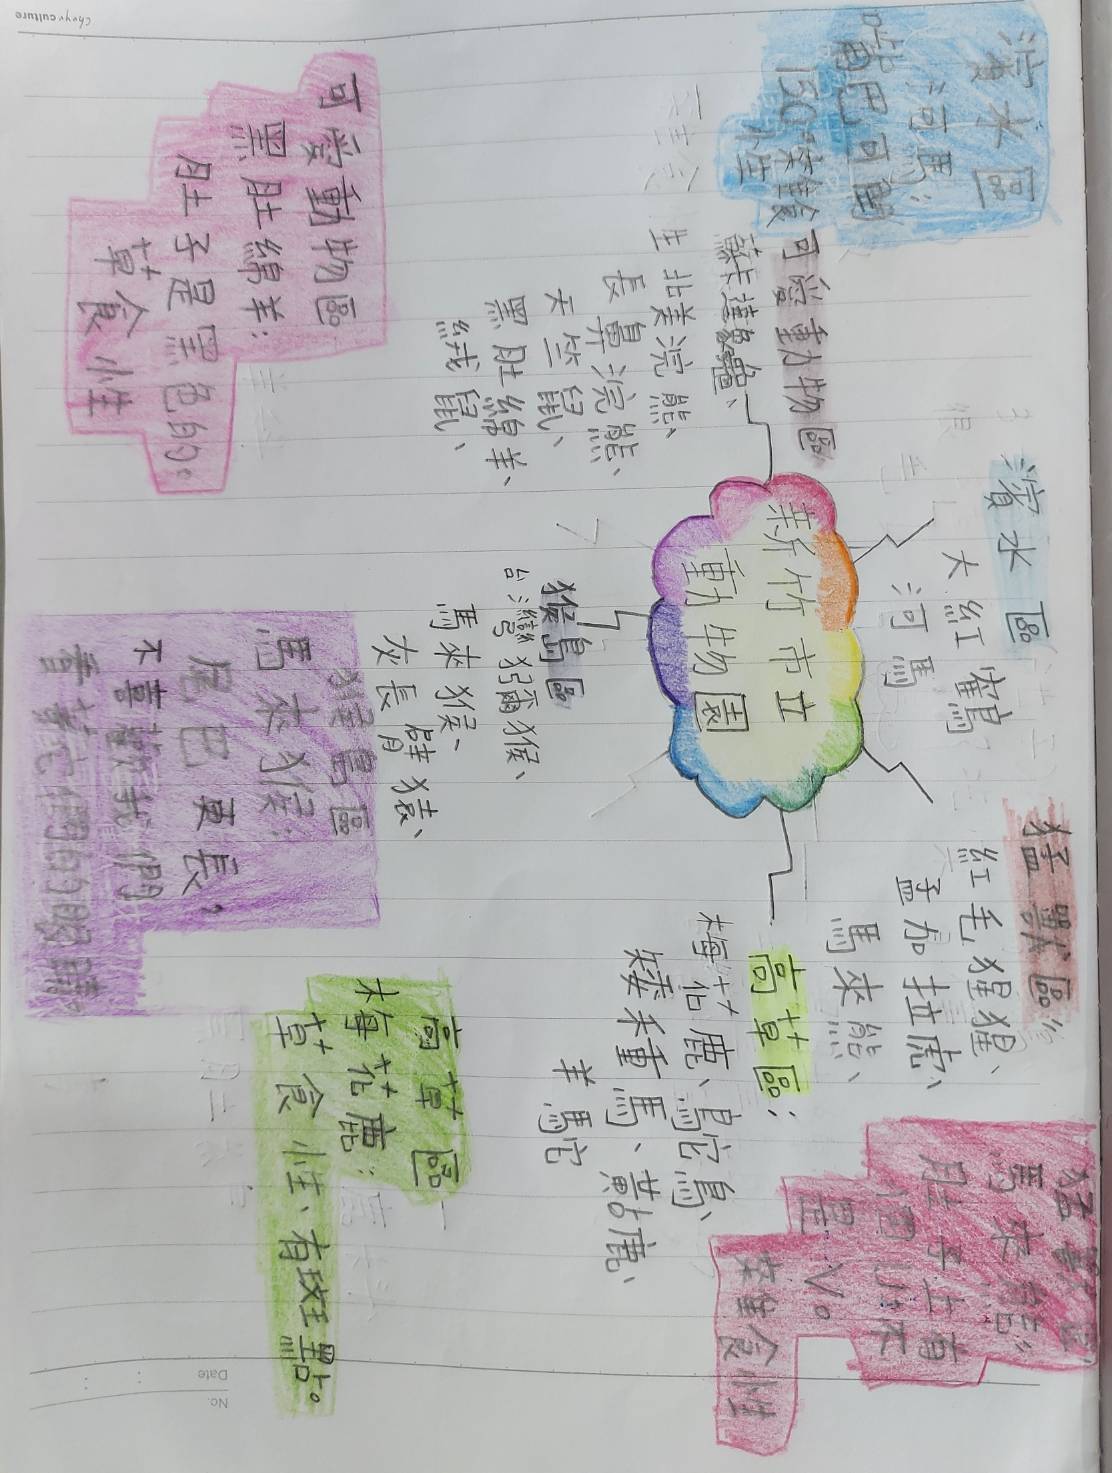 濱水區
河馬:
嘴巴可開
150°雜食
性
濱水區
大紅鶴
河馬
猛獸區:
紅毛猩猩、
孟加拉虎、
馬來熊、
猛獸區
馬來熊:
肚子上有
個U,不
是V。
雜食性
可愛動物區
蘇卡達象龜、
北美浣熊、
長鼻浣熊、
天竺鼠、
黑肚綿羊、
絨鼠、
新竹市立
動物園
高草區:
梅花鹿、鴕鳥、
矮種馬、黇鹿、
羊駝
猴島區
台灣獼猴、
馬來猴、
灰長臂猿、
可愛動物區
黑肚綿羊:
肚子是黑色的。
草食性
猴島區
馬來猴:
尾巴更長,
不喜歡我們
看著它們的眼睛。
高草區
梅花鹿:
草食性、有斑點。
No.
Date